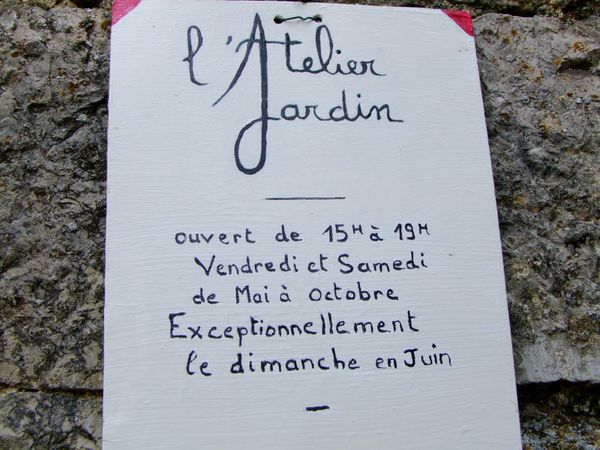 l'Atelier
Jardin
ouvert de 15H à 19H
Vendredi et Samedi
de Mai à Octobre
Exceptionnellement
le dimanche en Juin